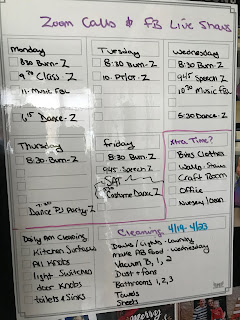 Zoom Calls & FB Live Shows
Monday
8:30 Burn-Z
9:30 Class Z
11- Music FBL
6:15 Dance-Z
Tuesday
8:30 Burn-Z
10- Pilot-Z
Wednesday
8:30 Burn-Z
9:45 Speech Z
10:30 Music FBL
5:30 Dance-Z
Thursday
8:30-Burn-Z
Dance PJ Party-Z
Friday
8:30 Burn-Z
9:45 Speech-Z
SAT
Costume Dance Z
Xtra Time?
Bins Clothes
Walls-Stairs
Craft Room
Office
Nursery/Loan
Daily Am Cleaning
Kitchen Surfaces
All Knobs
light Switches
door Knobs
toilets & Sinks
Cleaning 4/19-4/23
Dawns/Lights-Laundry
make AB food Wednesday
Vacuum B, 1, 2
Dust + fans
Bathrooms 1,2,3
Towels
Sheets